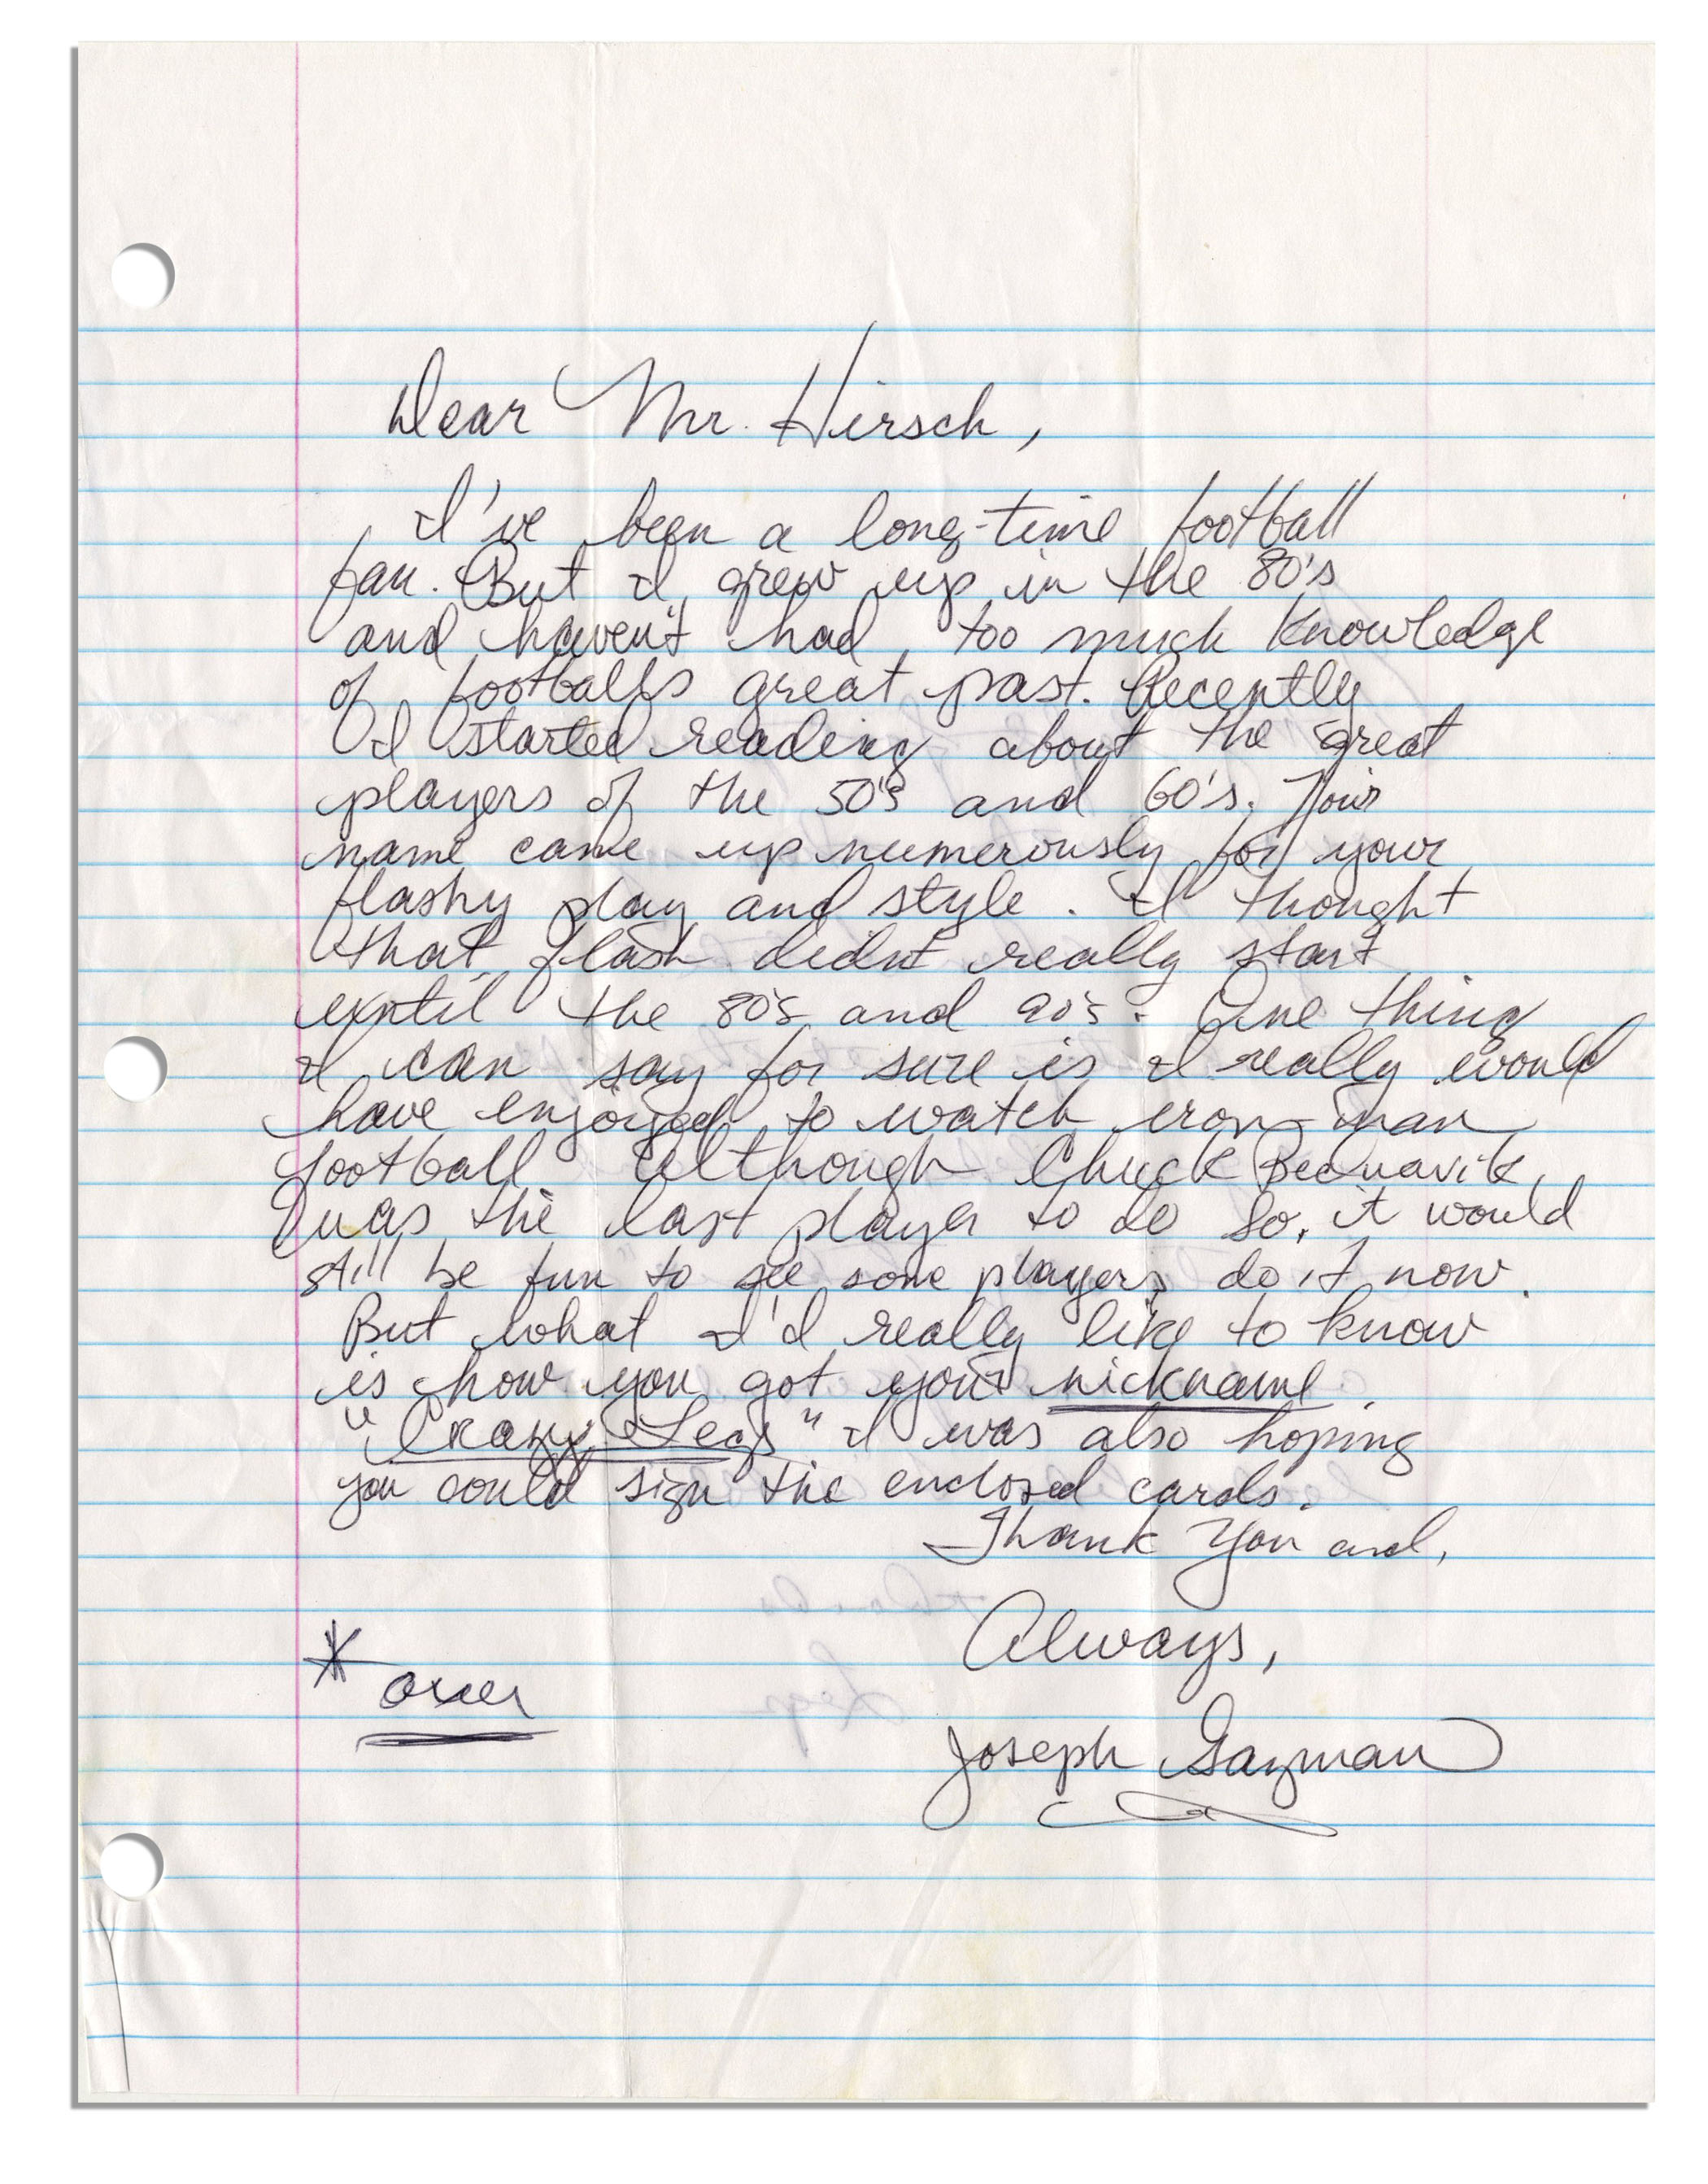 Dear Mr. Hirsch,
I've been a long-time football
fan. But I grew up in the 80's
and haven't had too much knowledge
of footballs great past. Recently
I started reading about the great
players of the 50's and 60's. Your
name came up numerously for your
flashy play and style. I thought
that flash didnt really start
until the 80's and 90's. One thing
I can say for sure is I really would
have enjoyed to watch iron-man
football. Although Chuck Bednavik
was the last player to do so, it would
still be fun to see some players do it now.
But what I'd really like to know
is how you got your nickname
"Crazy Legs" I was also hoping
you could sign the enclosed cards.
Thank You and,
Always,
* over
Joseph Gazman